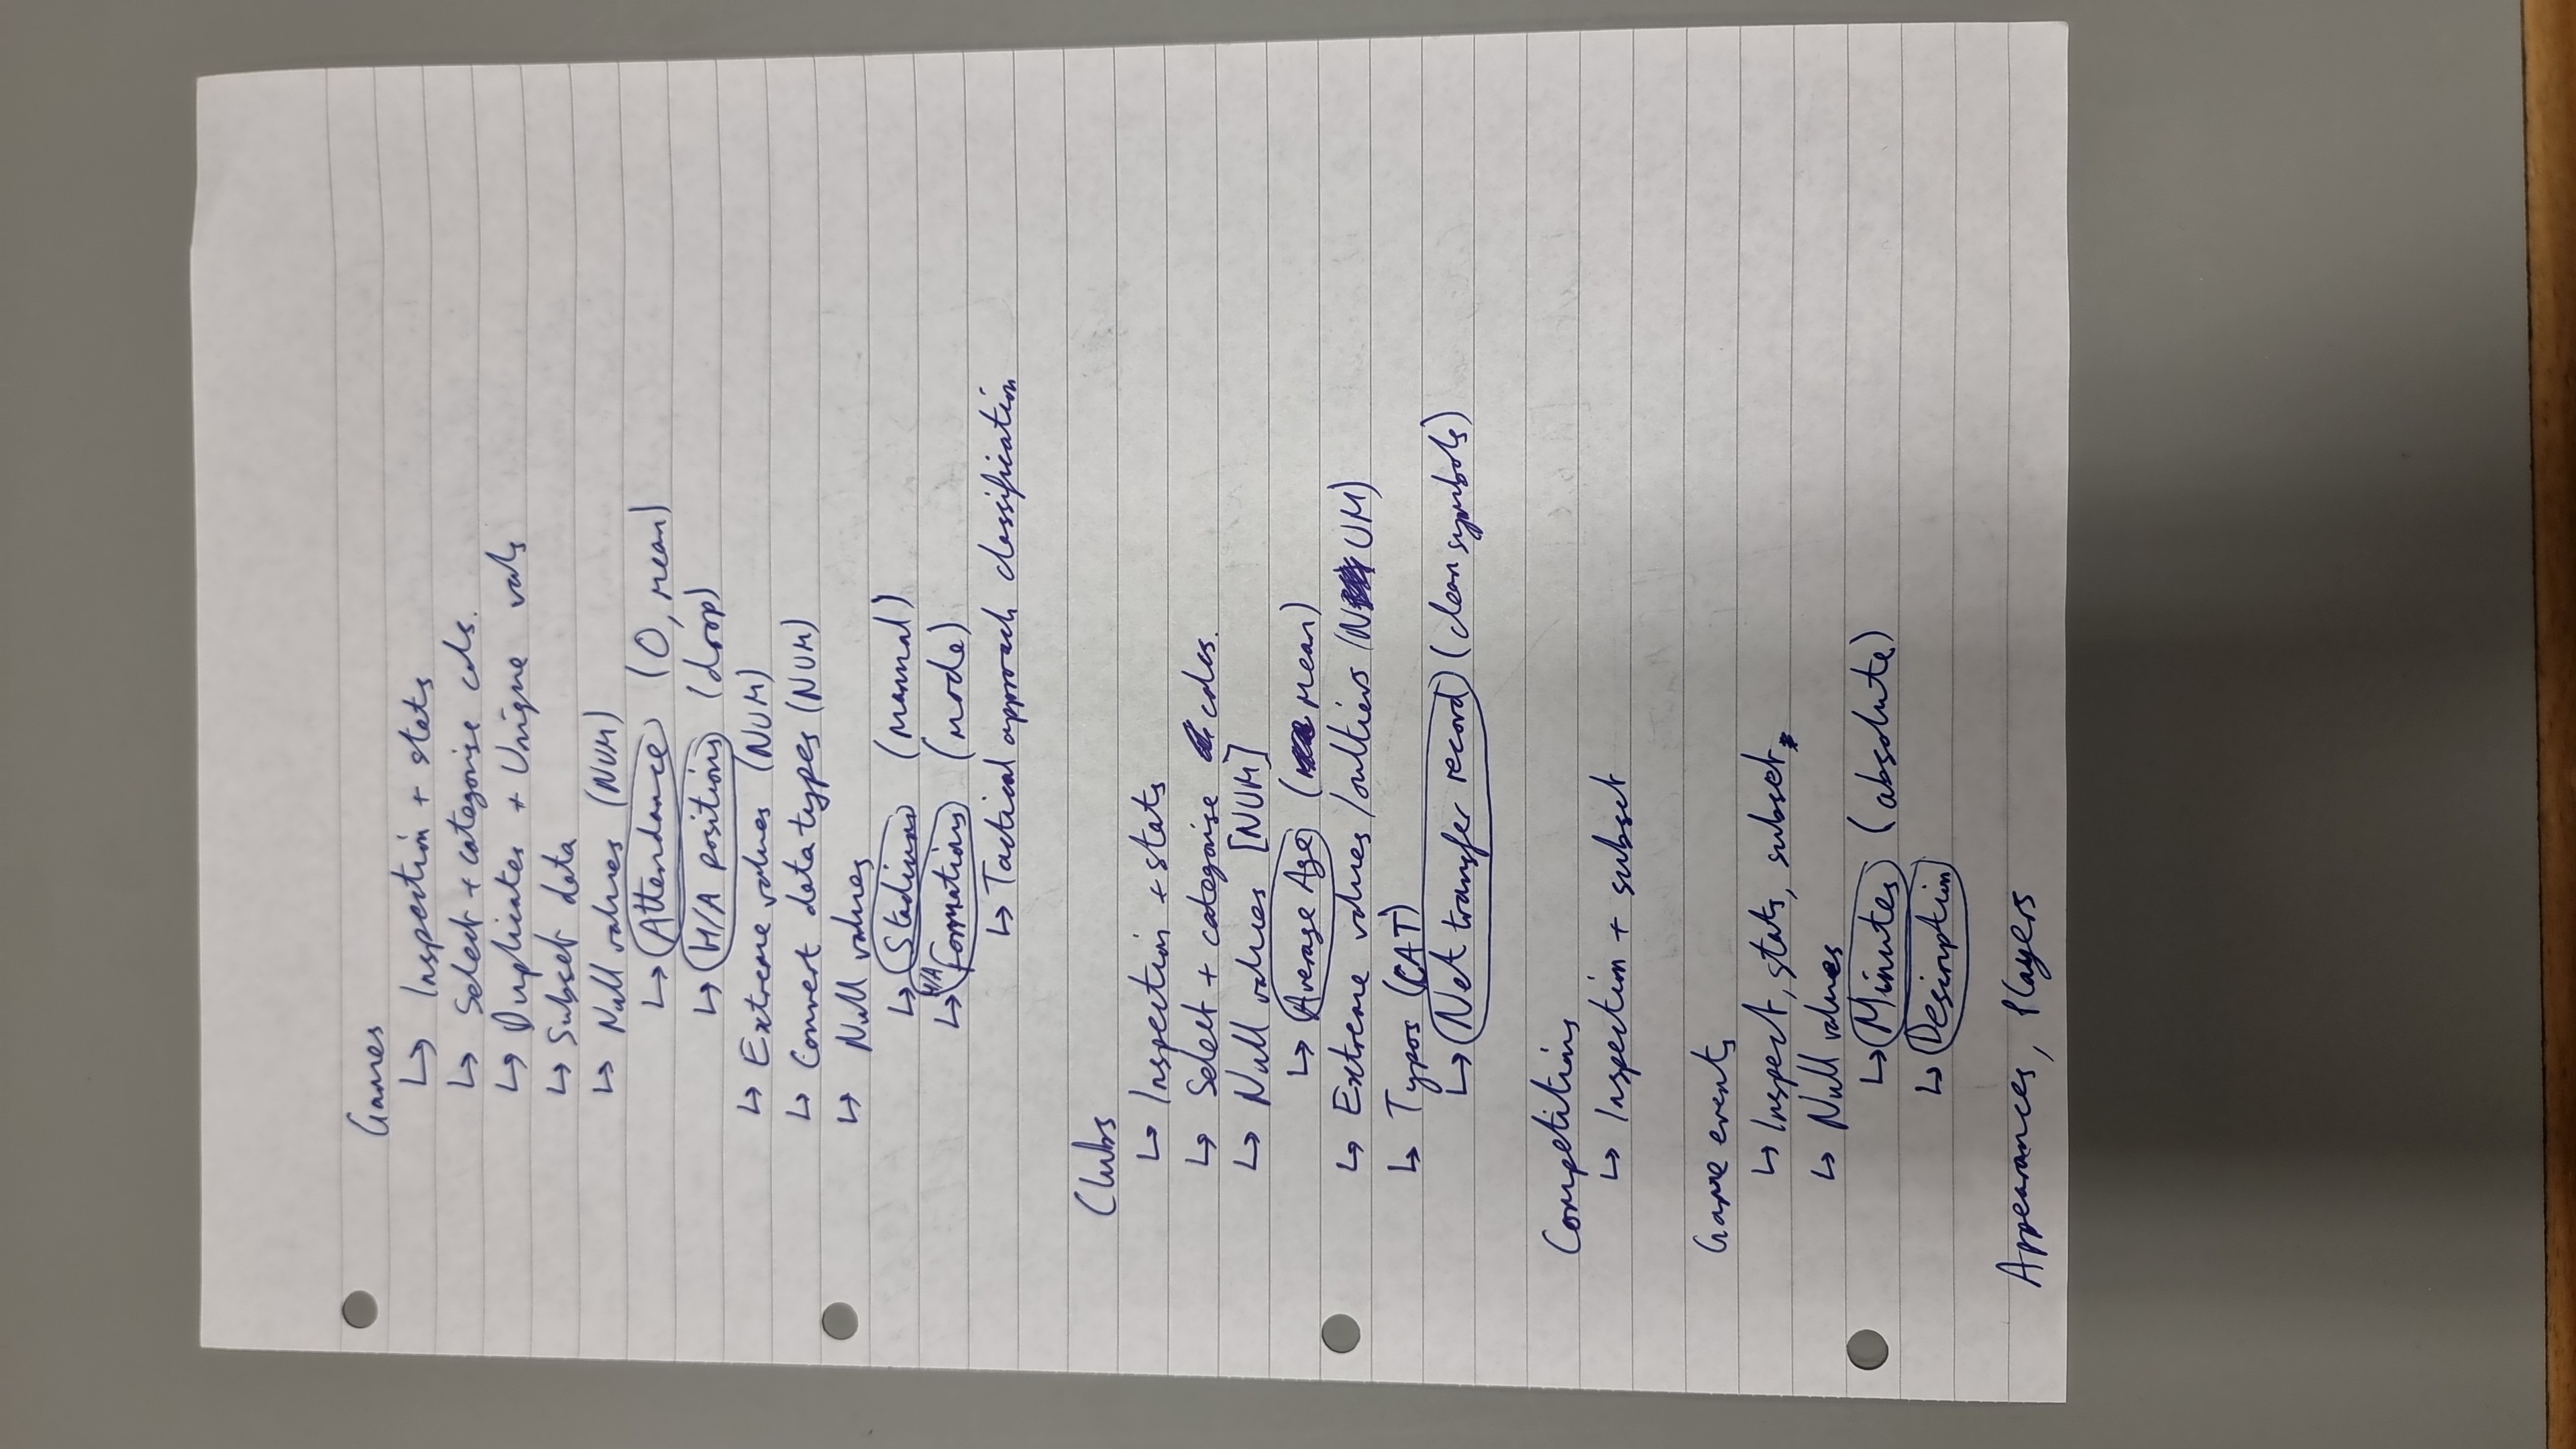 Games
↳ Inspection + stats
↳ Select + categorise cols.
↳ Duplicates + Unique vals
↳ Subset data
↳ Null values (NUM)
↳ Attendance (0, mean)
↳ H/A positions (drop)
↳ Extreme values (NUM)
↳ Convert data types (NUM)
↳ Null values
↳ Stadiums (manual)
↳ H/A Formations (mode)
↳ Tactical approach classification
Clubs
↳ Inspection + stats
↳ Select + categorise cols.
↳ Null values [NUM]
↳ Average Age (Mean)
↳ Extreme values/outliers (NUM)
↳ Typos (CAT)
↳ Net transfer record (clean symbols)
Competitions
↳ Inspection + subset
Game events
↳ Inspect, stats, subset
↳ Null values
↳ Minutes (absolute)
↳ Description
Appearances, Players